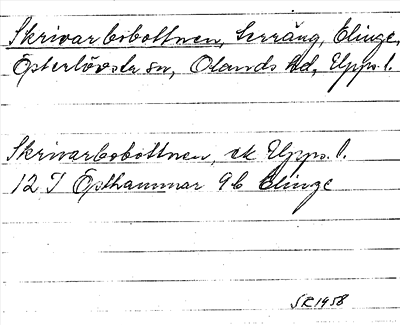 Skrivarbobottnen, terräng, Elinge,
Österlövsta sn, Olands hd, Upps. l.
Skrivarbobottnen, ek Upps. l.
12 I Östhammar 9b Elinge
SR 1958